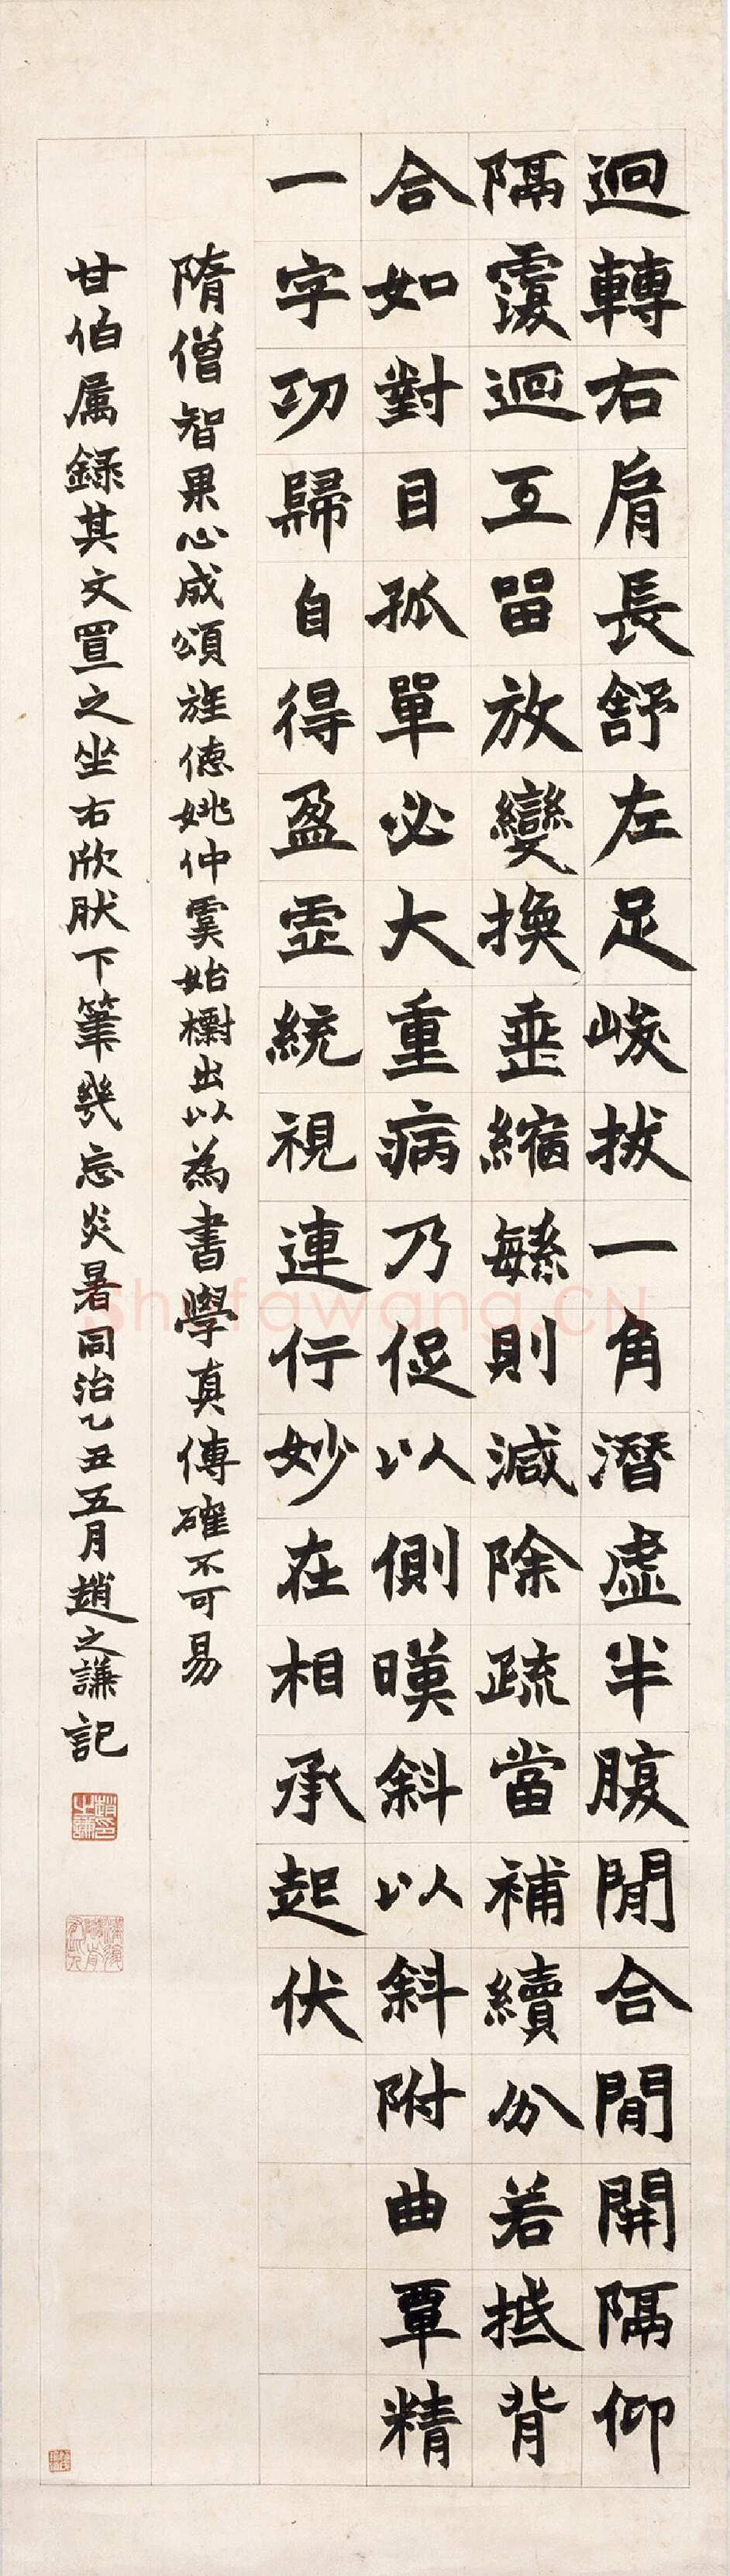 迴轉右肩長舒左足峻拔一角潛虛半腹閒合閒開隔仰
隔覆迴互畱放變換垂縮繇則減除疏當補續分若抵背
合如對目孤單必大重病乃促以側暎斜以斜附曲覃精
一字功歸自得盈虛統視連行妙在相承起伏
隋僧智果心成頌旌德姚仲虞始櫥出以為書學真傳確不可易
甘伯属録其文置之坐右欣肰下筆幾忘炎暑同治乙丑五月趙之謙記
趙之謙印
Shufawang.CN